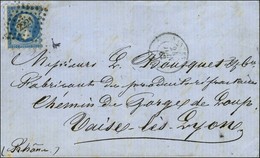 Messieurs L. Bousques & Cie
Fabricants de produits
Chemin de Gorges de Loup
Vaise-lès-Lyon
(Rhône)